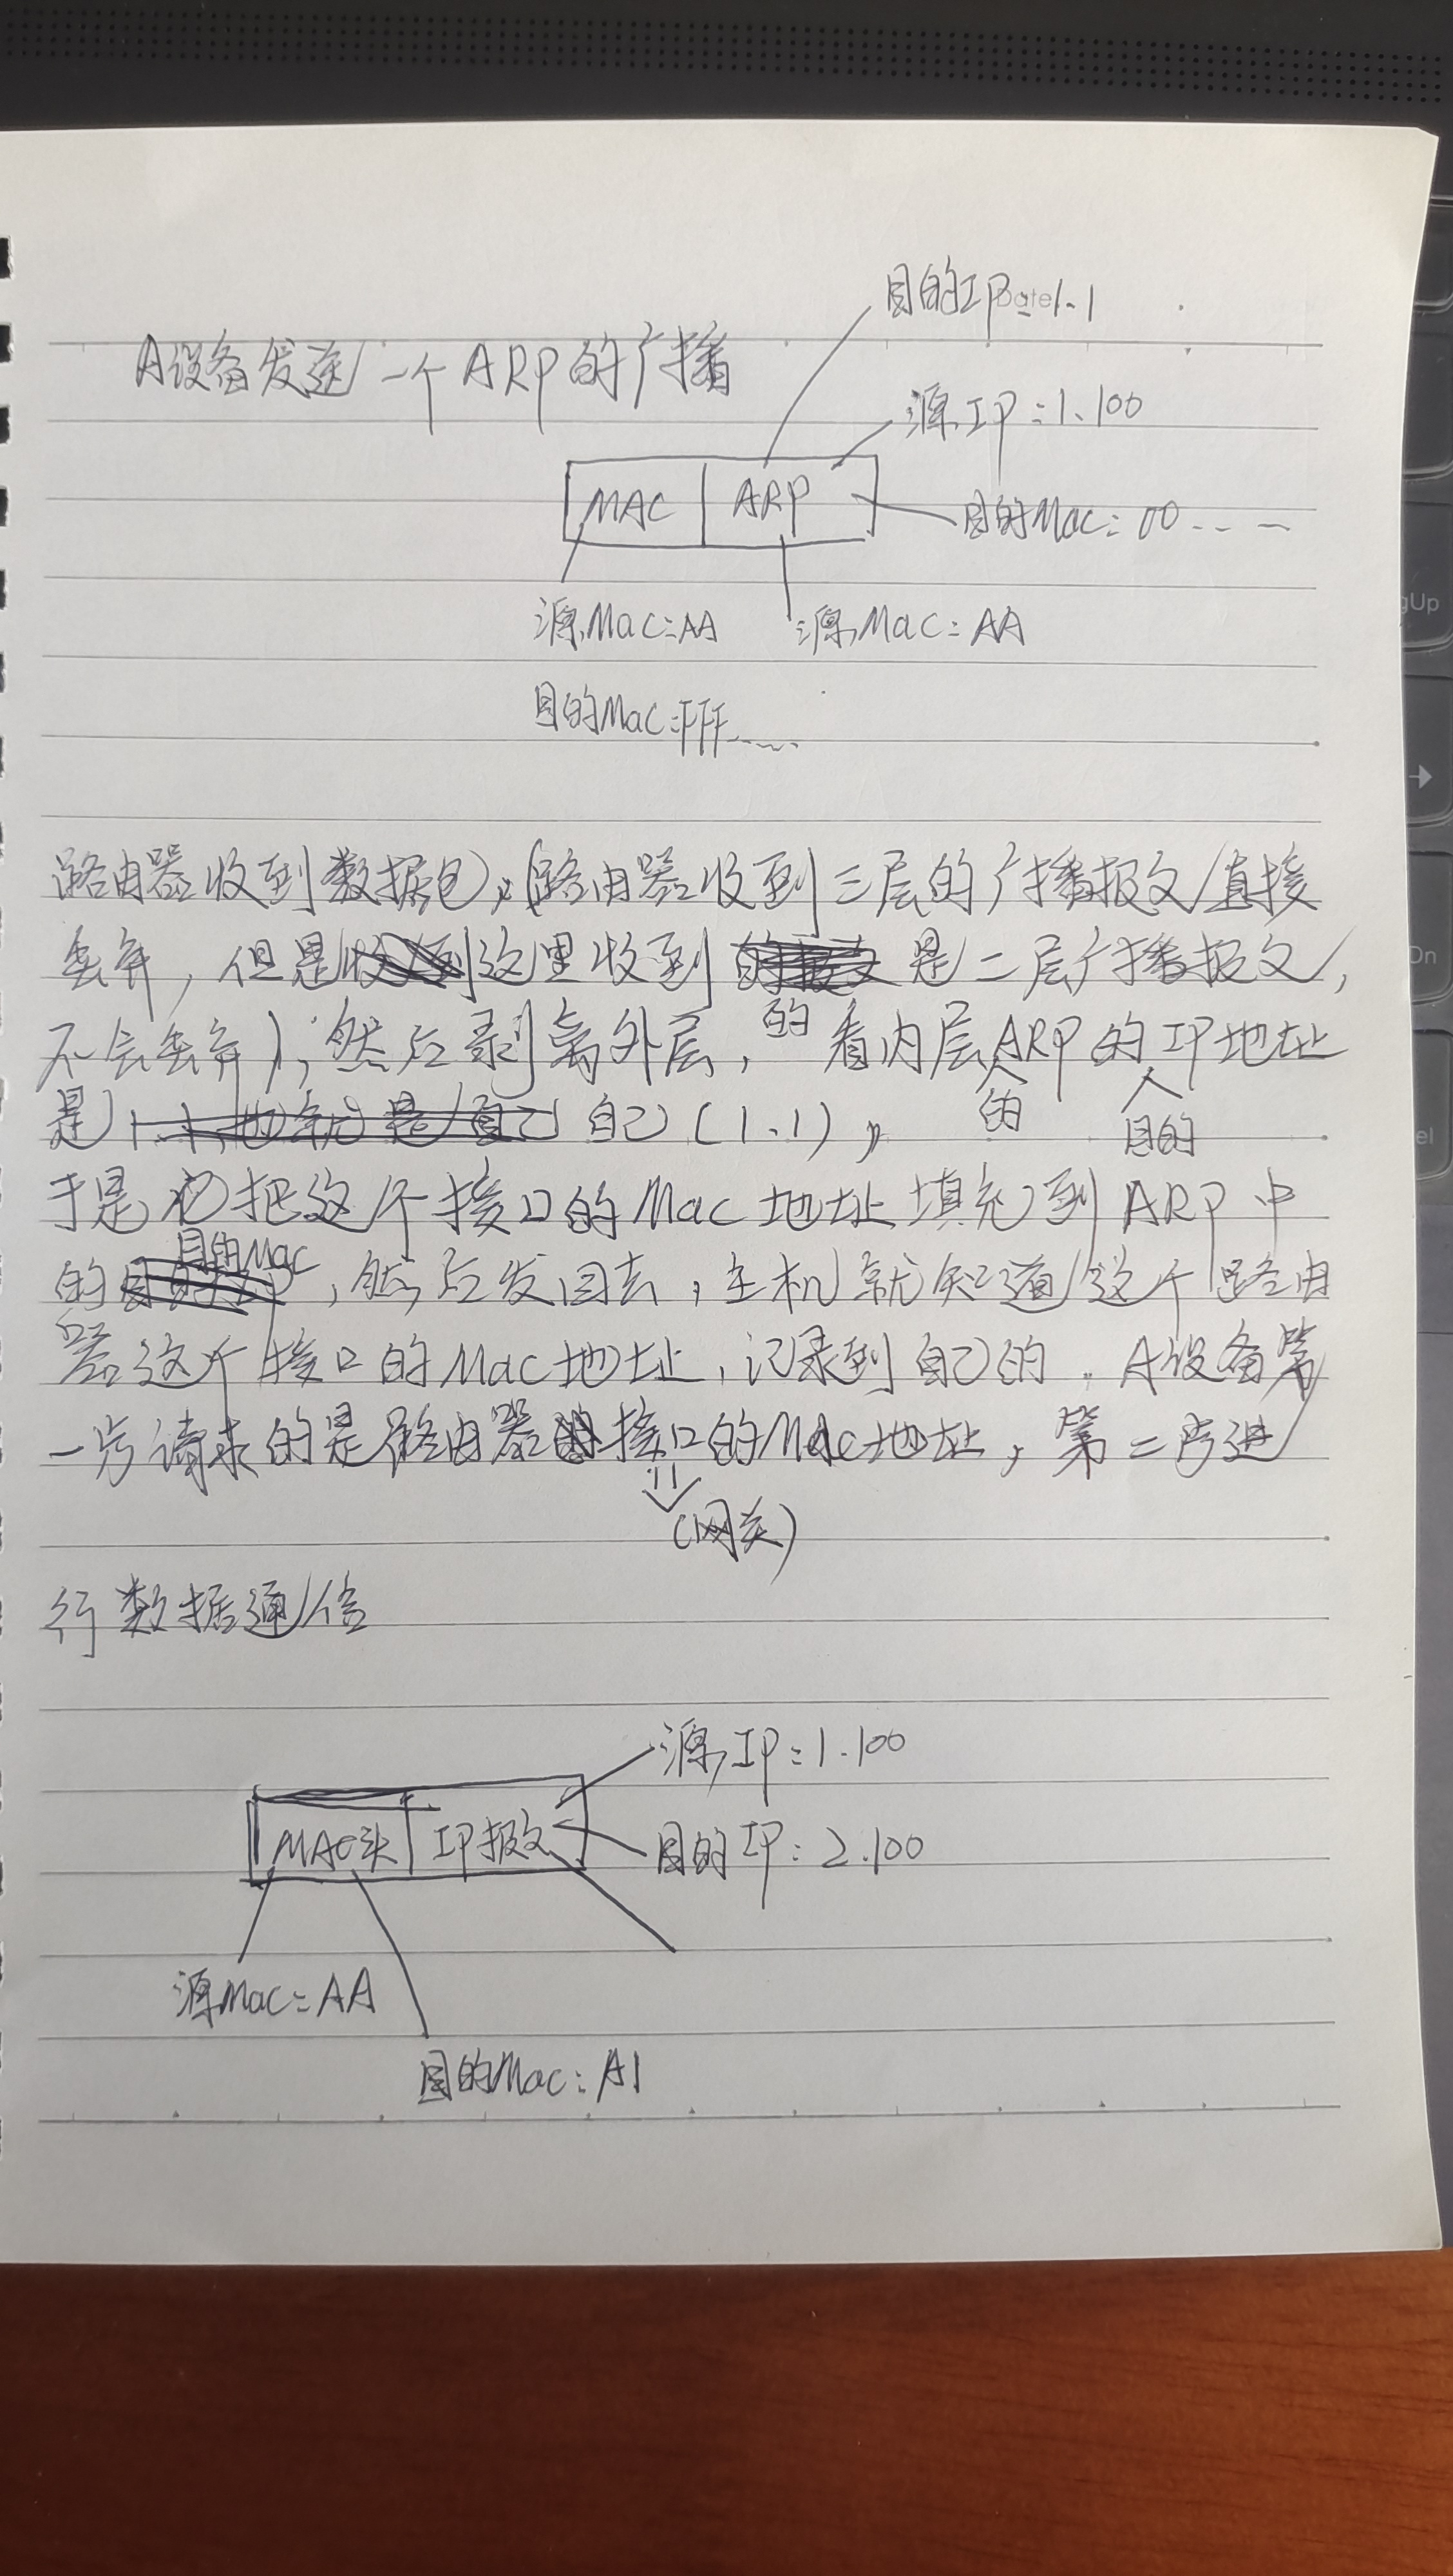 目的IP:1.1
Date
A设备发送一个ARP的广播
源IP:1.100
MAC ARP
目的Mac:00----
源Mac:AA 源Mac:AA
目的Mac:FFF----
路由器收到数据包,(路由器收到三层的广播报文直接
丢弃,但是这里收到的是二层广播报文,
不会丢弃),然后剥离外层,看内层的ARP的目的IP地址
是自己(1.1),
于是把这个接口的Mac地址填充到ARP中
的目的Mac,然后发回去,主机就知道这个路由
器这个接口的Mac地址,记录到自己的。A设备第
一步请求的是路由器接口的Mac地址,第二步进
(网关)
行数据通信
源IP:1.100
MAC头 IP报文
目的IP:2.100
源Mac:AA
目的Mac:A1
gUp
On
el